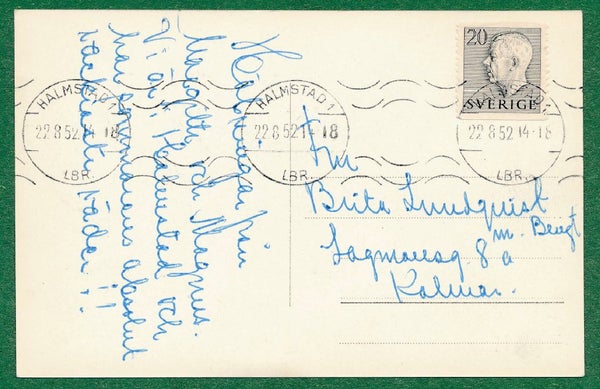 Hälsningar från
Margotty och Magnus.
Vi är i Halmstad och
har sommarens absolut
vackraste väder!!
20
SVERIGE
HALMSTAD 1
22 8 52 14-18
LBR.
HALMSTAD 1
22 8 52 14-18
LBR.
22 8 52 14-18
LBR.
Fru
Brita Lundquist
m. Bengt
Lagmansg 8 a
Kalmar.